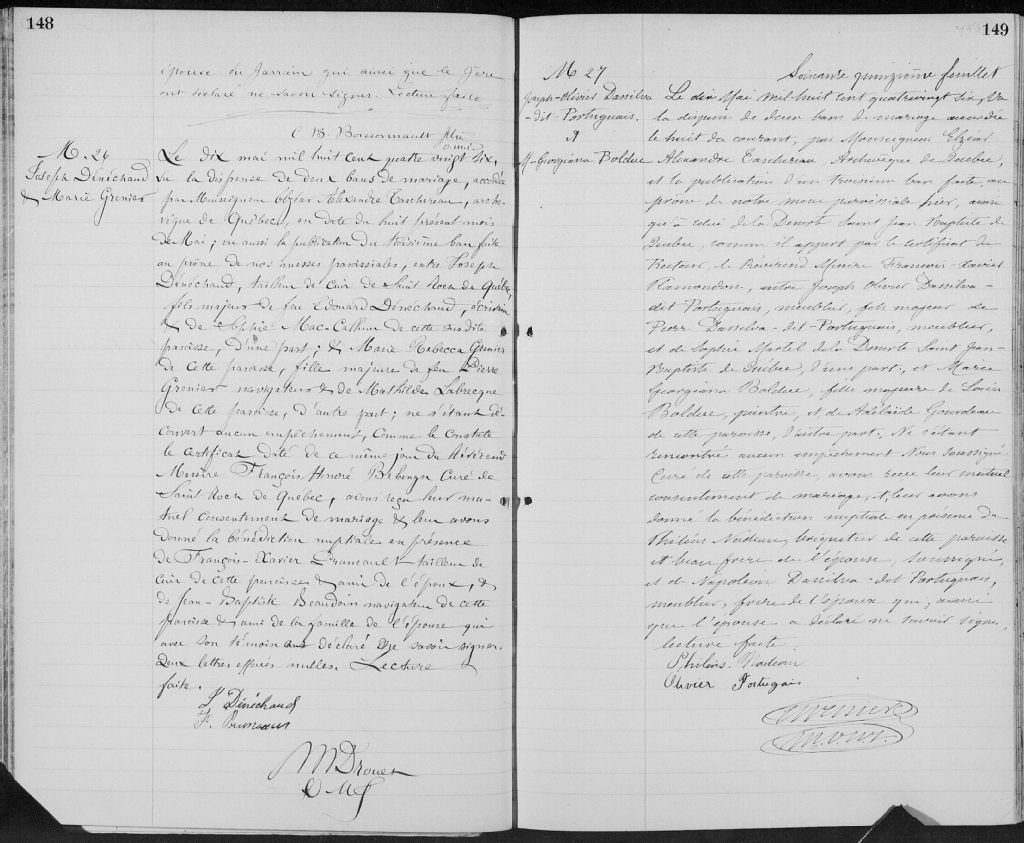 148
épouse du parrain qui ainsi que le Père
ont déclaré ne savoir signer. Lecture faite
C B. Boissonnault Ptre
M. 26
Joseph Dénéchaud
& Marie Grenier
Le dix mai mil huit cent quatre vingt six,
Vu la dispense de deux bans de mariage, accordée
par Monseigneur Elzéar Alexandre Taschereau, arche-
vêque de Québec, en date du huit présent mois
de Mai; vu aussi la publication du troisième ban faite
au prône de nos messes paroissiales, entre Joseph
Dénéchaud, tailleur de cuir de Saint Roch de Québec,
fils majeur de feu Edouard Dénéchaud, écrivain
& de Sophie Mac-Callum de cette susdite
paroisse, d'une part; & Marie Rebecca Grenier
de cette paroisse, fille majeure de feu Pierre
Grenier navigateur & de Mathilde Labrecque
de cette paroisse, d'autre part; ne s'étant dé-
couvert aucun empêchement, comme le constate
le certificat daté de ce même jour du Révérend
Messire François Honoré Bélanger Curé de
Saint Roch de Québec, avons reçu leur mu-
tuel consentement de mariage & leur avons
donné la bénédiction nuptiale en présence
de François-Xavier Bruneault tailleur de
cuir de cette paroisse & ami de l'époux, &
de Jean-Baptiste Beaudoin navigateur de cette
paroisse & ami de la famille de l'épouse qui
avec son témoin ont déclaré ne savoir signer.
Deux lettres effacées nulles. Lecture
faite.
J. Dénéchaud
F. Bruneau
Drouet
149
Soixante quinzième feuillet
M 27
Joseph-Olivier Dassilva
-dit-Portuguais.
&
M-Georgiana Bolduc
Le dix Mai mil huit cent quatrevingt six, Vu
la dispense de deux bans de mariage accordée
le huit du courant, par Monseigneur Elzéar
Alexandre Taschereau Archevêque de Québec,
et la publication d'un troisième ban faite au
prône de notre messe paroissiale hier, ainsi
qu'à celui de la Desserte Saint Jean Baptiste de
Québec, comme il appert par le certificat du
Recteur, le Révérend Messire François-Xavier
Plamondon, entre Joseph Olivier Dassilva-
dit-Portuguais, meublier, fils majeur de
Pierre Dassilva-dit-Portuguais, meublier,
et de Sophie Martel de la Desserte Saint Jean-
Baptiste de Québec, d'une part; et Marie
Georgiana Bolduc, fille majeure de Louis
Bolduc, peintre, et de Adélaïde Gourdeau
de cette paroisse, d'autre part; Ne s'étant
rencontré aucun empêchement Nous Soussigné
Curé de cette paroisse, avons reçu leur mutuel
consentement de mariage, et leur avons
donné la bénédiction nuptiale en présence de
Philéas Nadeau, briquetier de cette paroisse
et beau frère de l'épouse, soussigné,
et de Napoléon Dassilva-dit Portuguais,
meublier, frère de l'époux qui, ainsi
que l'épouse a déclaré ne savoir signer,
lecture faite.
Philéas Nadeau
Olivier Portugais